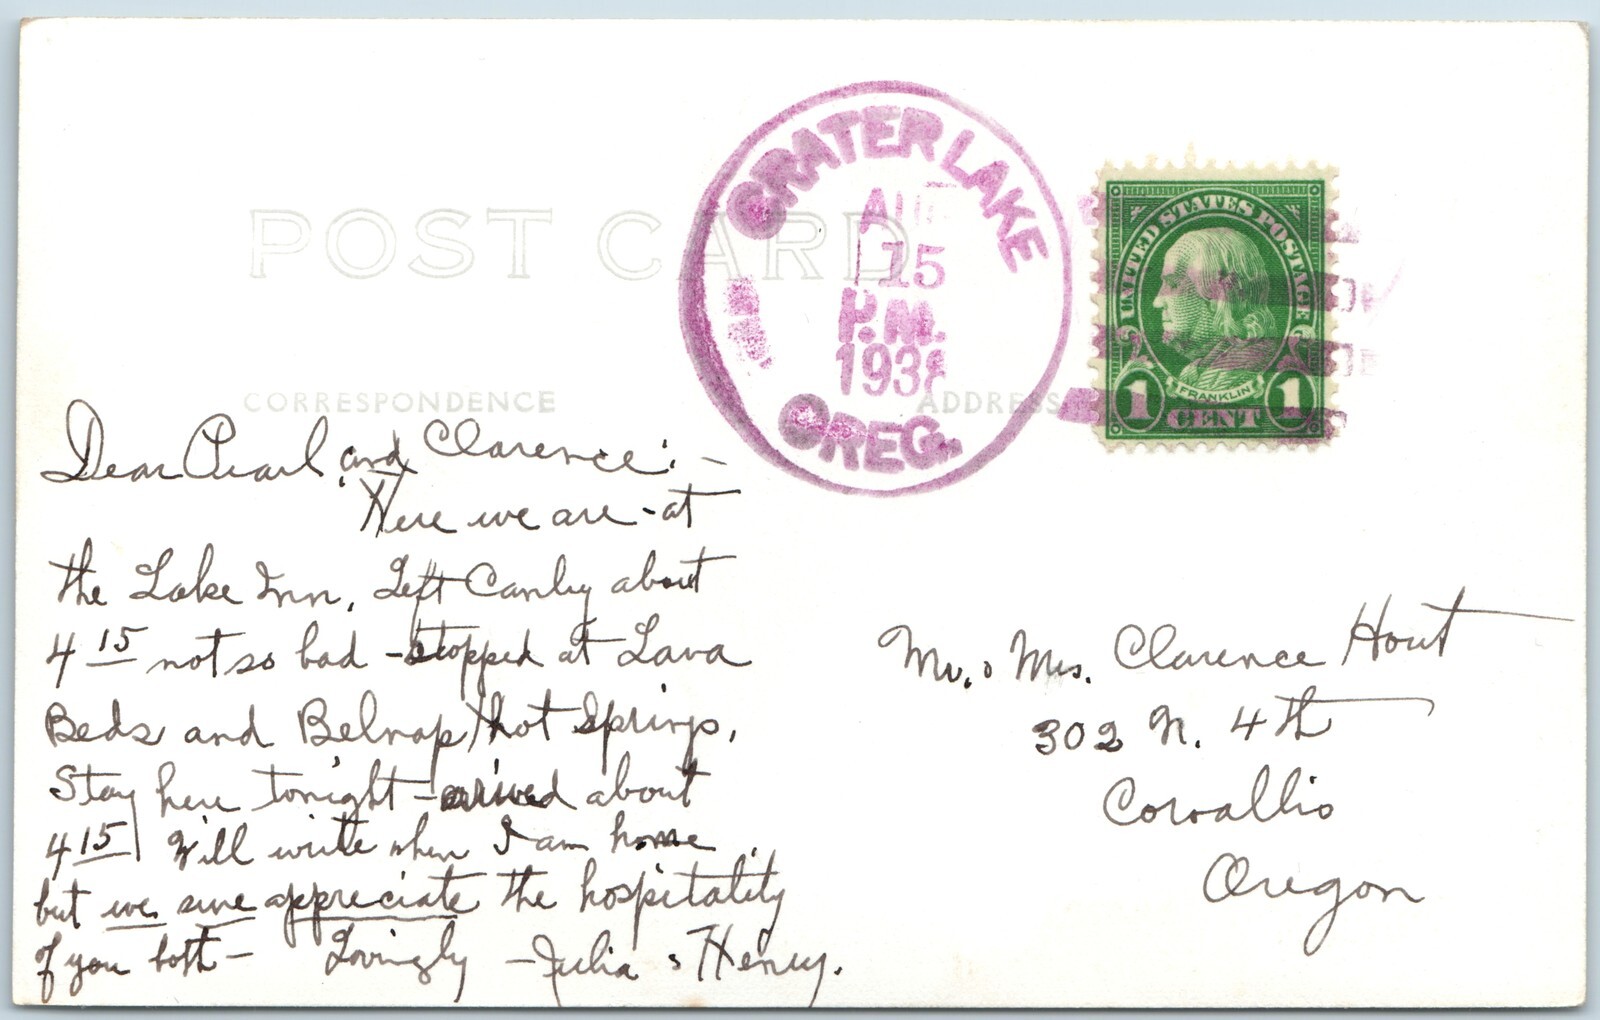 POST CARD
CORRESPONDENCE
ADDRESS
CRATER LAKE
AUG
15
P.M.
1938
OREG.
UNITED STATES POSTAGE
FRANKLIN
1 CENT 1
Dear Pearl and Clarence: -
Here we are - at
the Lake Inn, Left Canby about
4 15 not so bad - stopped at Lava
Beds and Belnap hot springs.
Stay here tonight - arrived about
4 15 Will write when I am home
but we sure appreciate the hospitality
of you both - Lovingly - Julia & Henry.
Mr. & Mrs. Clarence Hout
302 N. 4th
Corvallis
Oregon